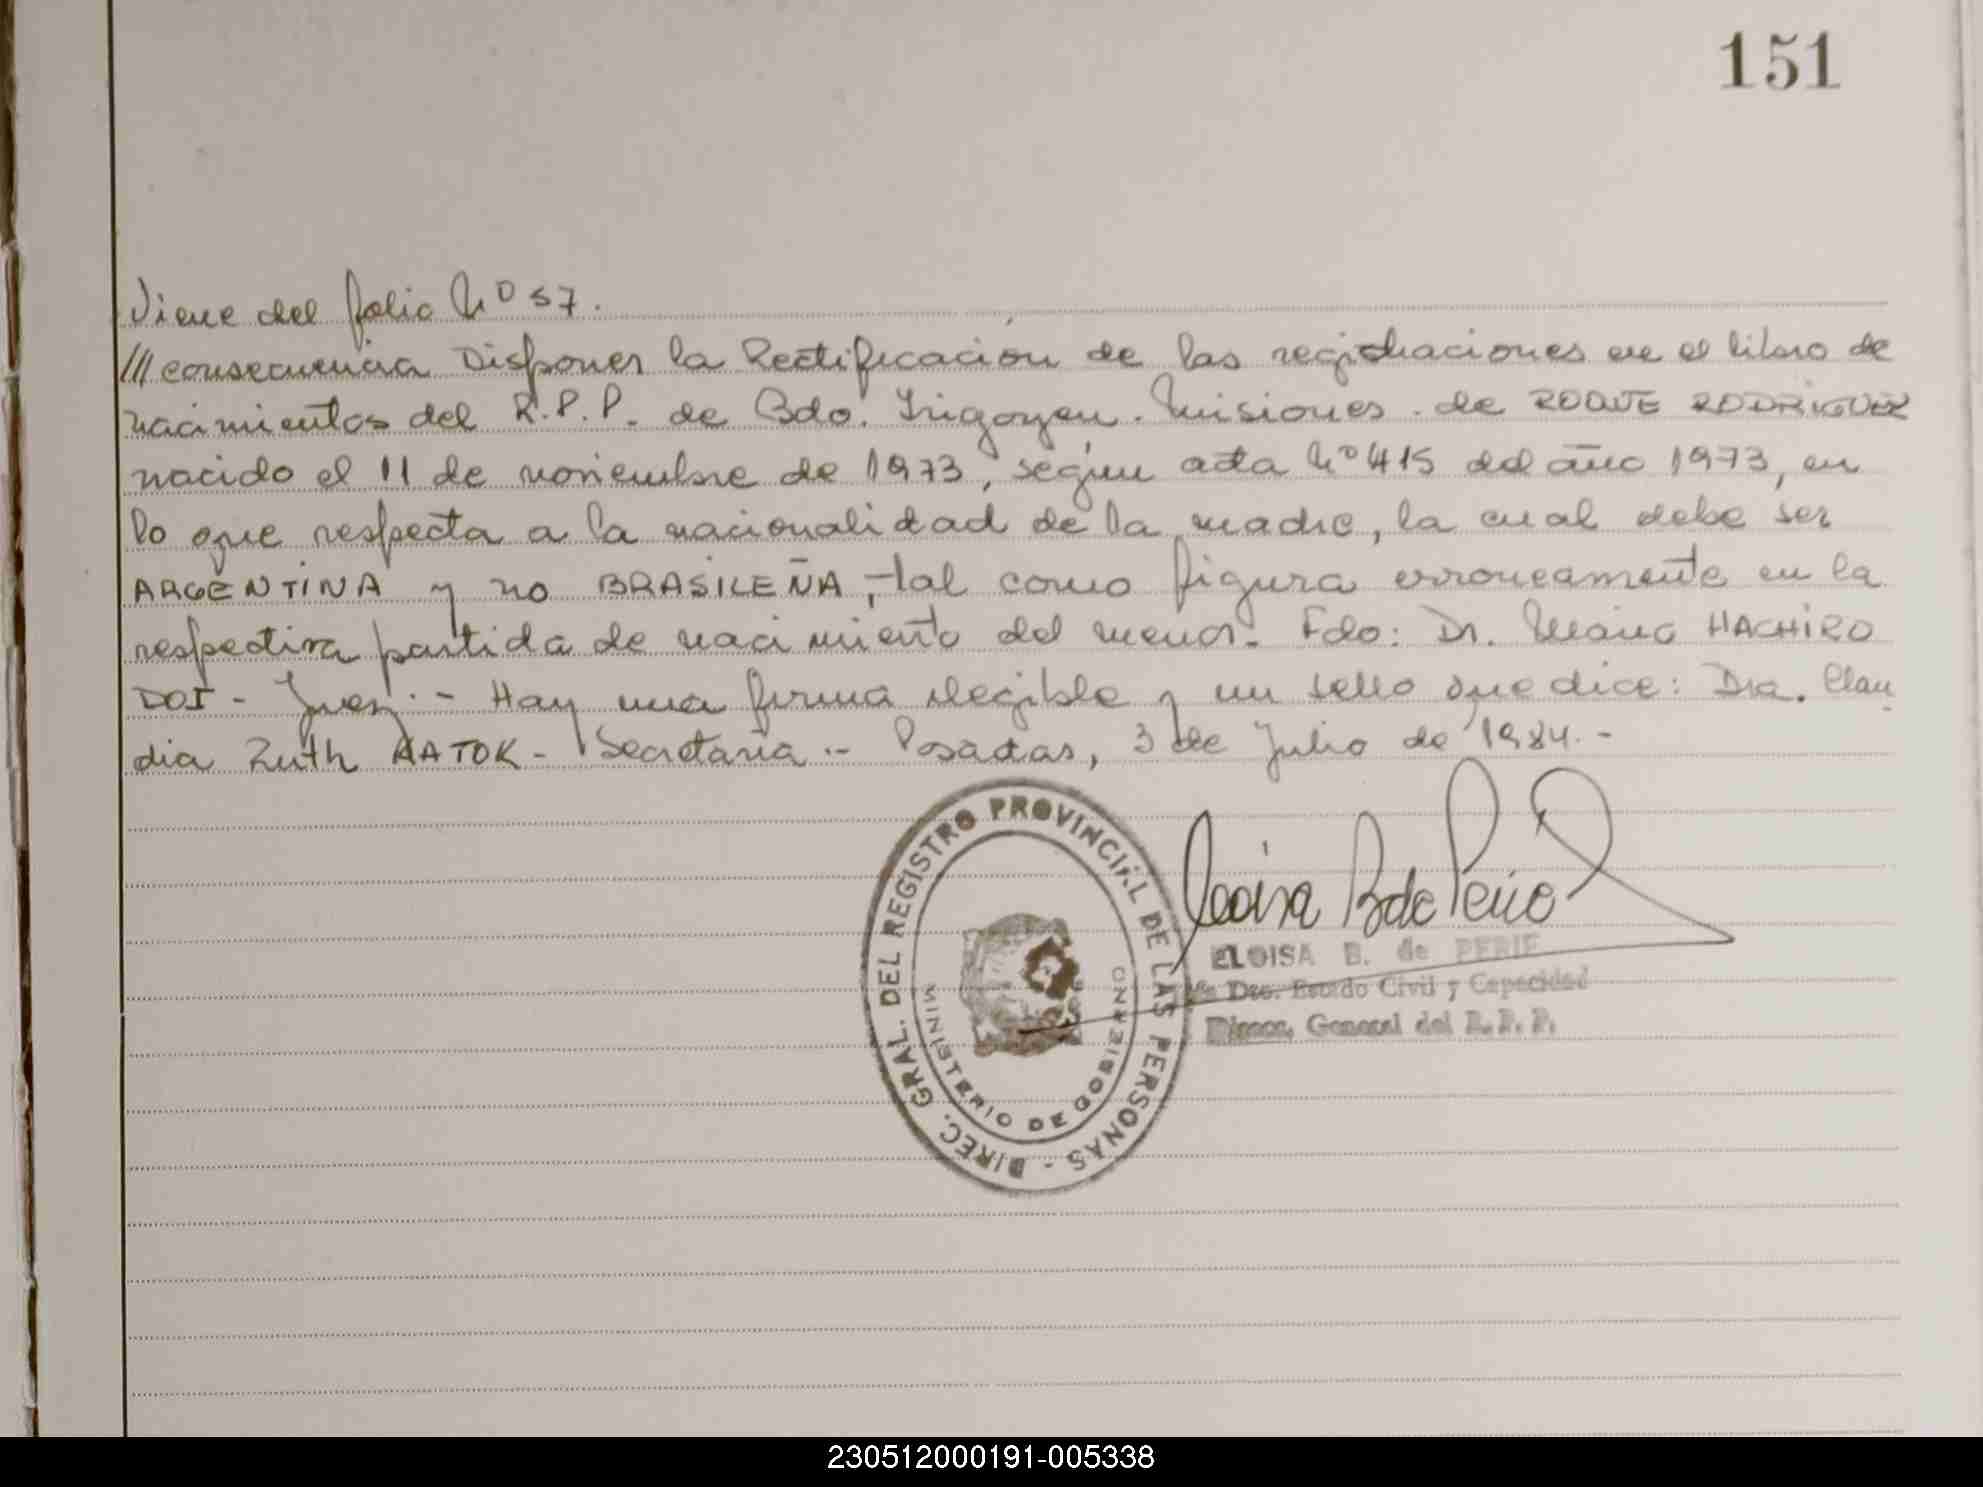 151
Viene del folio Nº 57.
/// consecuencia Disponer la Rectificación de las registraciones en el libro de
nacimientos del R.P.P. de Bdo. Irigoyen. Misiones. de ROQUE RODRIGUEZ
nacido el 11 de noviembre de 1973, según acta Nº 415 del año 1973, en
lo que respecta a la nacionalidad de la madre, la cual debe ser
ARGENTINA y no BRASILEÑA, tal como figura erroneamente en la
respectiva partida de nacimiento del menor. Fdo: Dr. Mario HACHIRO
DOI - Juez.- Hay una firma ilegible y un sello que dice: Dra. Clau
dia Ruth KATOK - Secretaria.- Posadas, 3 de Julio de 1984.-
DIREC. GRAL. DEL REGISTRO PROVINCIAL DE LAS PERSONAS -
MINISTERIO DE GOBIERNO
ELOISA B. de PERIE
Dto. Estado Civil y Capacidad
Direcc. General del R.P.P.
230512000191-005338